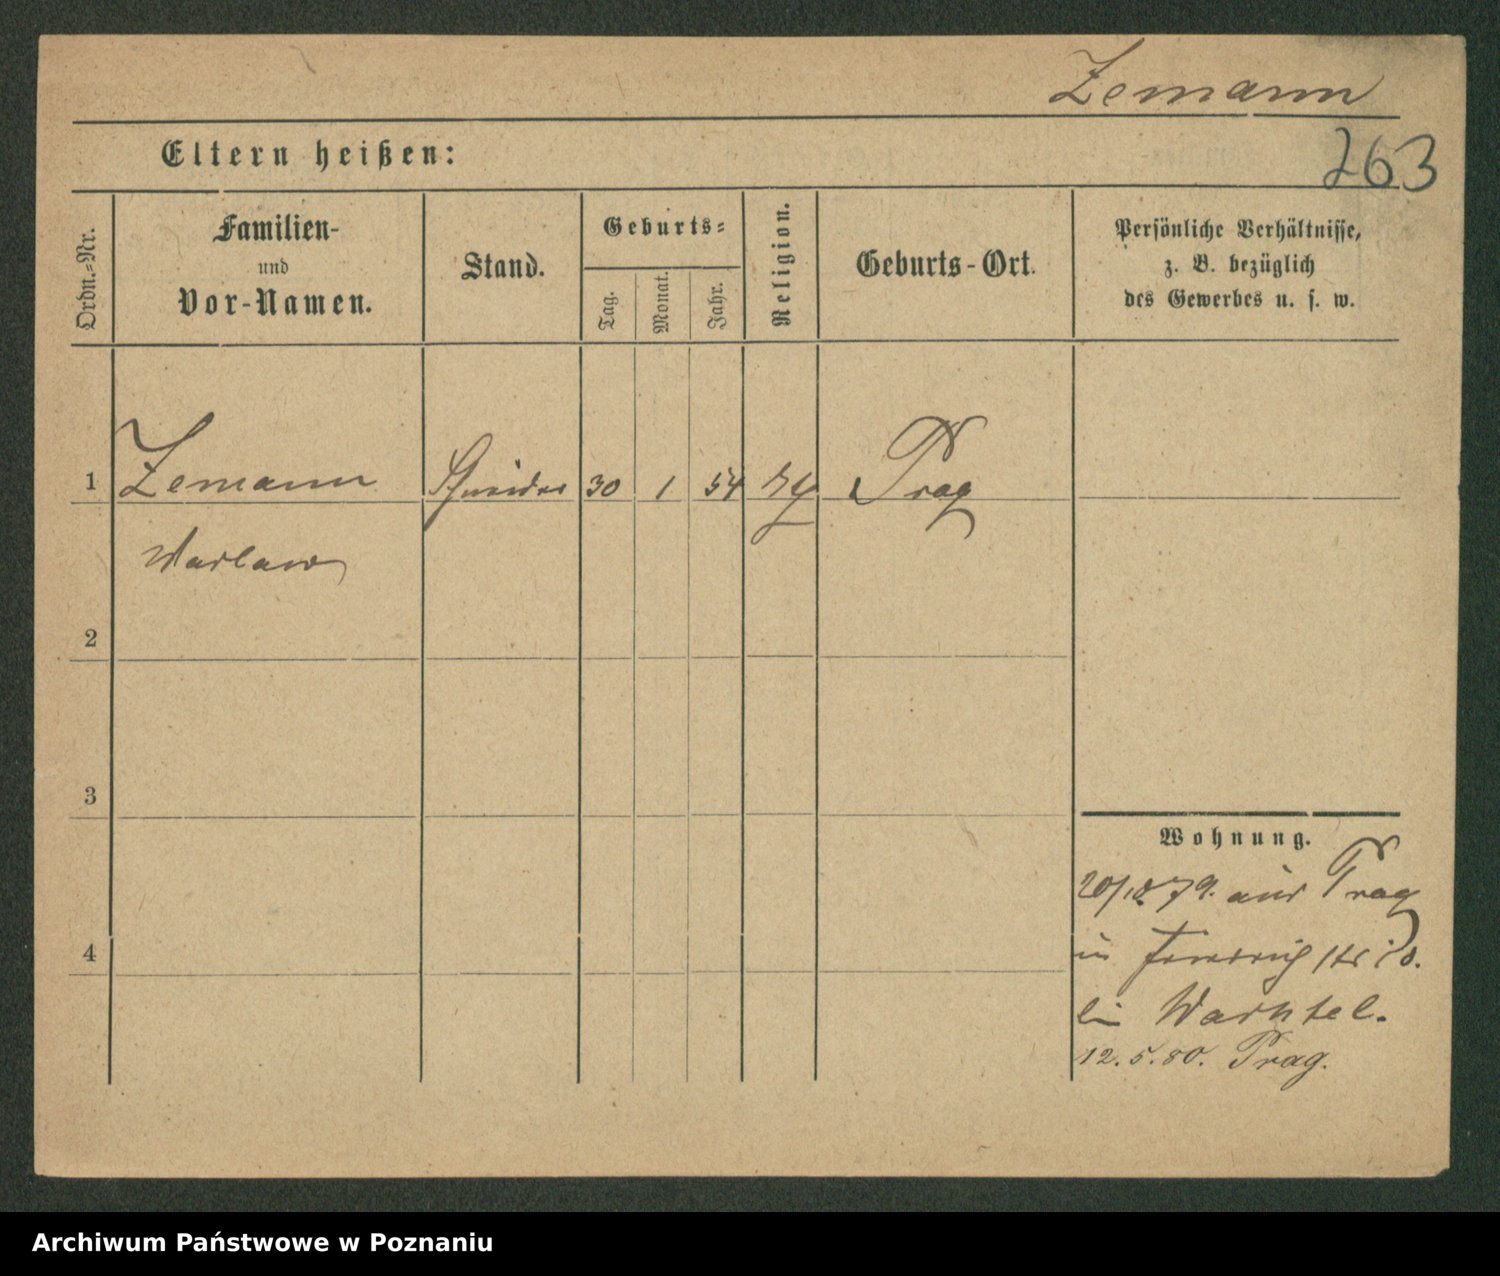 Zemann
Eltern heißen:
263
Ordn.=Nr.
Familien-
und
Vor-Namen.
Stand.
Geburts=
Tag.
Monat.
Jahr.
Religion.
Geburts-Ort.
Persönliche Verhältnisse,
z. B. bezüglich
des Gewerbes u. s. w.
1 Zemann Schneider 30 1 54 Prag
2
3
4
Wohnung.
20/10 79. aus Prag
in
bei Wachtel.
12.5.80. Prag.
Archiwum Państwowe w Poznaniu